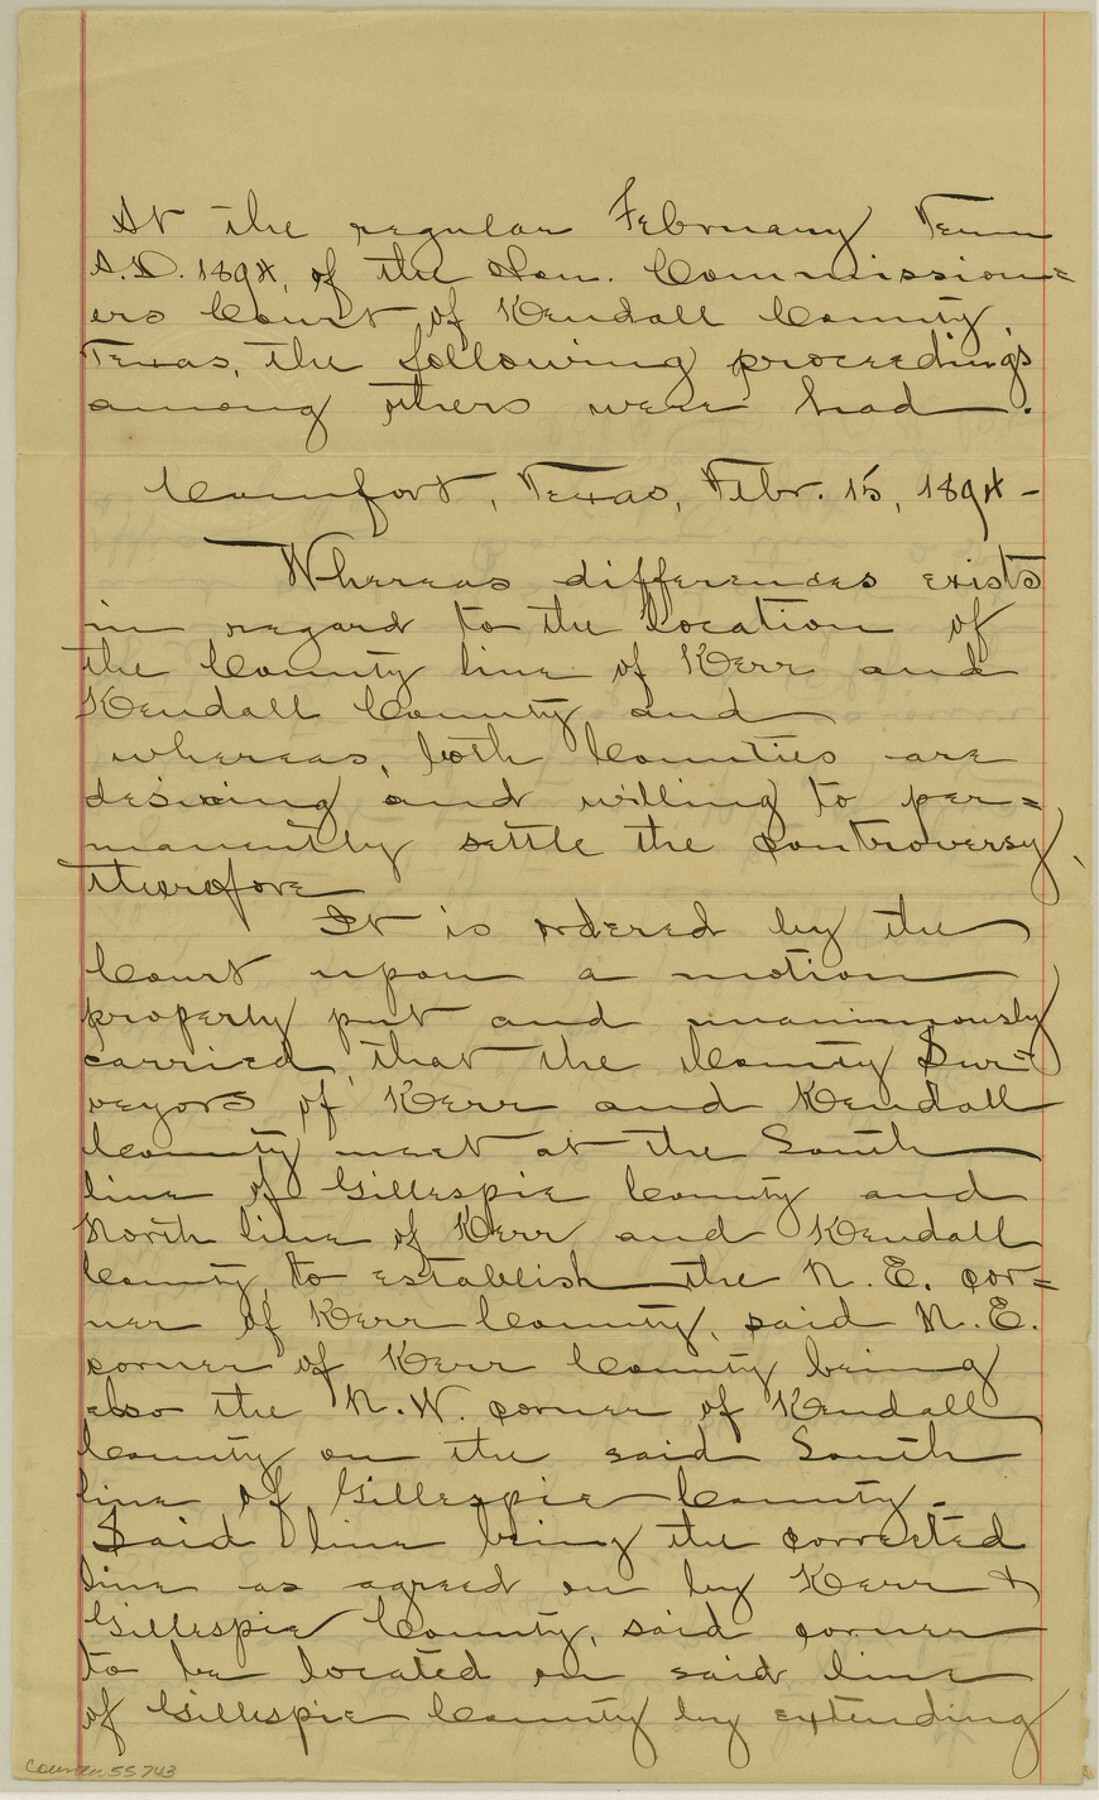 At the regular February Term
A.D. 1894, of the Hon. Commission=
ers Court of Kendall County,
Texas, the following proceedings
among others were had.
Comfort, Texas, Febr. 15, 1894 -
Whereas differences exists
in regard to the location of
the County line of Kerr and
Kendall County and
whereas, both Counties are
desiring and willing to per=
manently settle the controversy,
therefore
It is ordered by the
Court upon a motion
properly put and unanimously
carried, that the County Sur=
veyors of Kerr and Kendall
County meet at the South
line of Gillespie County and
North line of Kerr and Kendall
County, to establish the N. E. cor=
ner of Kerr County, said N. E.
corner of Kerr County being
also the N. W. corner of Kendall
County on the said South
line of Gillespie County -
Said line being the corrected
line as agreed on by Kerr &
Gillespie County, said corner
to be located on said line
of Gillespie County by extending
Counter 55743